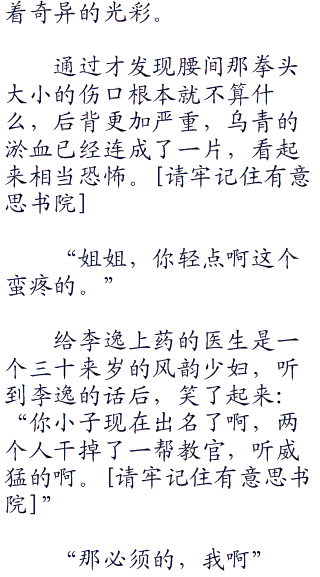 着奇异的光彩。
通过才发现腰间那拳头
大小的伤口根本就不算什
么，后背更加严重，乌青的
淤血已经连成了一片，看起
来相当恐怖。[请牢记住有意
思书院]
“姐姐，你轻点啊这个
蛮疼的。”
给李逸上药的医生是一
个三十来岁的风韵少妇，听
到李逸的话后，笑了起来：
“你小子现在出名了啊，两
个人干掉了一帮教官，听威
猛的啊。[请牢记住有意思书
院]”
“那必须的，我啊”